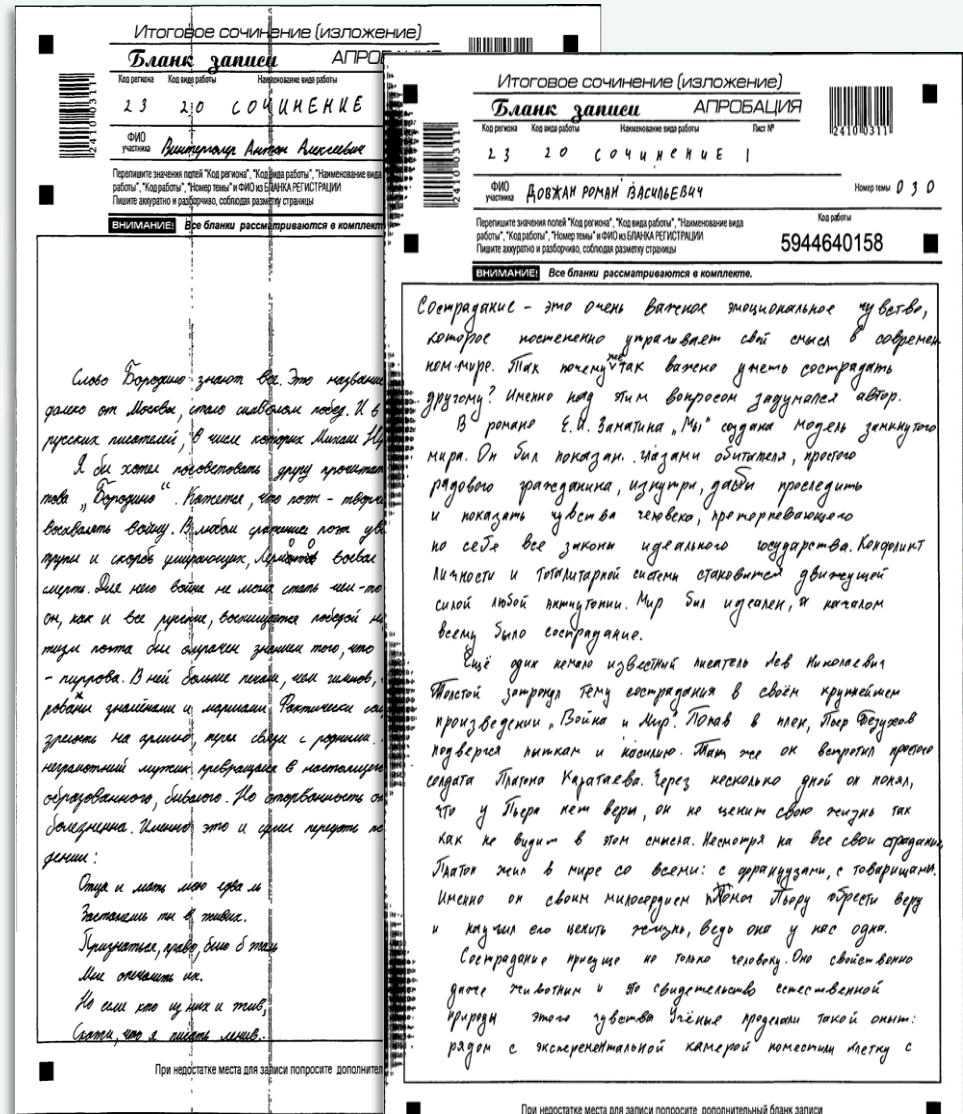 Итоговое сочинение (изложение)
Бланк записи
Код региона Код вида работы Наименование вида работы
23 20 СОЧИНЕНИЕ
ФИО участника Антон Алексеевич
Перепишите значения полей "Код региона", "Код вида работы", "Наименование вида
работы", "Код работы", "Номер темы" и ФИО из БЛАНКА РЕГИСТРАЦИИ
Пишите аккуратно и разборчиво, соблюдая разметку страницы
ВНИМАНИЕ! Все бланки рассматриваются в комплект
24100311
Слово Бородино знают все. Это название
далеко от Москвы, стало символом побед. И в
русских писателей, в числе которых Михаил
Я бы хотел посоветовать другу прочитат
това „Бородино“. Кажется, что поэт - творч
восхвалять войну. В любом сражении поэт
трупы и скорбь умирающих, воевал
смерти. Для него война не могла стать чем-то
он, как и все русские, восхищается победой
тизм поэта был омрачен знанием того, что
- пиррова. В ней больше печали, чем гимнов,
знамёнами и маршами. Фактически
на армию, терял связи с родными.
неграмотный мужик превращался в настоящего
образованного, бывалого. Но оторванность от
болезненна. Именно это и сумел передать
дении:
Отца и мать мою едва ль
Застанешь ты в живых.
Признаться, право, было б жаль
Мне опечалить их.
Но если кто из них и жив,
Скажи, что я писать ленив.
При недостатке места для записи попросите дополнител
Итоговое сочинение (изложение)
Бланк записи АПРОБАЦИЯ
Код региона Код вида работы Наименование вида работы Лист №
23 20 СОЧИНЕНИЕ 1
ФИО участника ДОВЖАН РОМАН ВАСИЛЬЕВИЧ Номер темы 030
Перепишите значения полей "Код региона", "Код вида работы", "Наименование вида
работы", "Код работы", "Номер темы" и ФИО из БЛАНКА РЕГИСТРАЦИИ
Пишите аккуратно и разборчиво, соблюдая разметку страницы
Код работы
5944640158
24100311
24100311
ВНИМАНИЕ! Все бланки рассматриваются в комплекте.
Сострадание - это очень важное эмоциональное чувство,
которое постепенно утрачивает свой смысл в современ
ном мире. Так почему же так важно уметь сострадать
другому? Именно над этим вопросом задумался автор.
В романе Е.И. Замятина „Мы“ создана модель замкнутого
мира. Он был показан глазами обитателя, простого
рядового гражданина, изнутри, дабы проследить
и показать чувства человека, претерпевающего
по себе все законы идеального государства. Конфликт
личности и тоталитарной системы становится движущей
силой любой антиутопии. Мир был идеален, а началом
всему было сострадание.
Ещё один немало известный писатель Лев Николаевич
Толстой затронул тему сострадания в своём крупнейшем
произведении „Война и Мир“. Попав в плен, Пьер Безухов
подвергся пыткам и насилию. Там же он встретил простого
солдата Платона Каратаева. Через несколько дней он понял,
что у Пьера нет веры, он не ценит свою жизнь так
как не видит в этом смысла. Несмотря на все свои страдания,
Платон жил в мире со всеми: с французами, с товарищами.
Именно он своим милосердием помог Пьеру обрести веру
и научил его ценить жизнь, ведь она у нас одна.
Сострадание присуще не только человеку. Оно свойственно
даже животным и это свидетельство естественной
природы этого чувства Учёные проделали такой опыт:
рядом с эксперементальной камерой поместили клетку с
При недостатке места для записи попросите дополнительный бланк записи